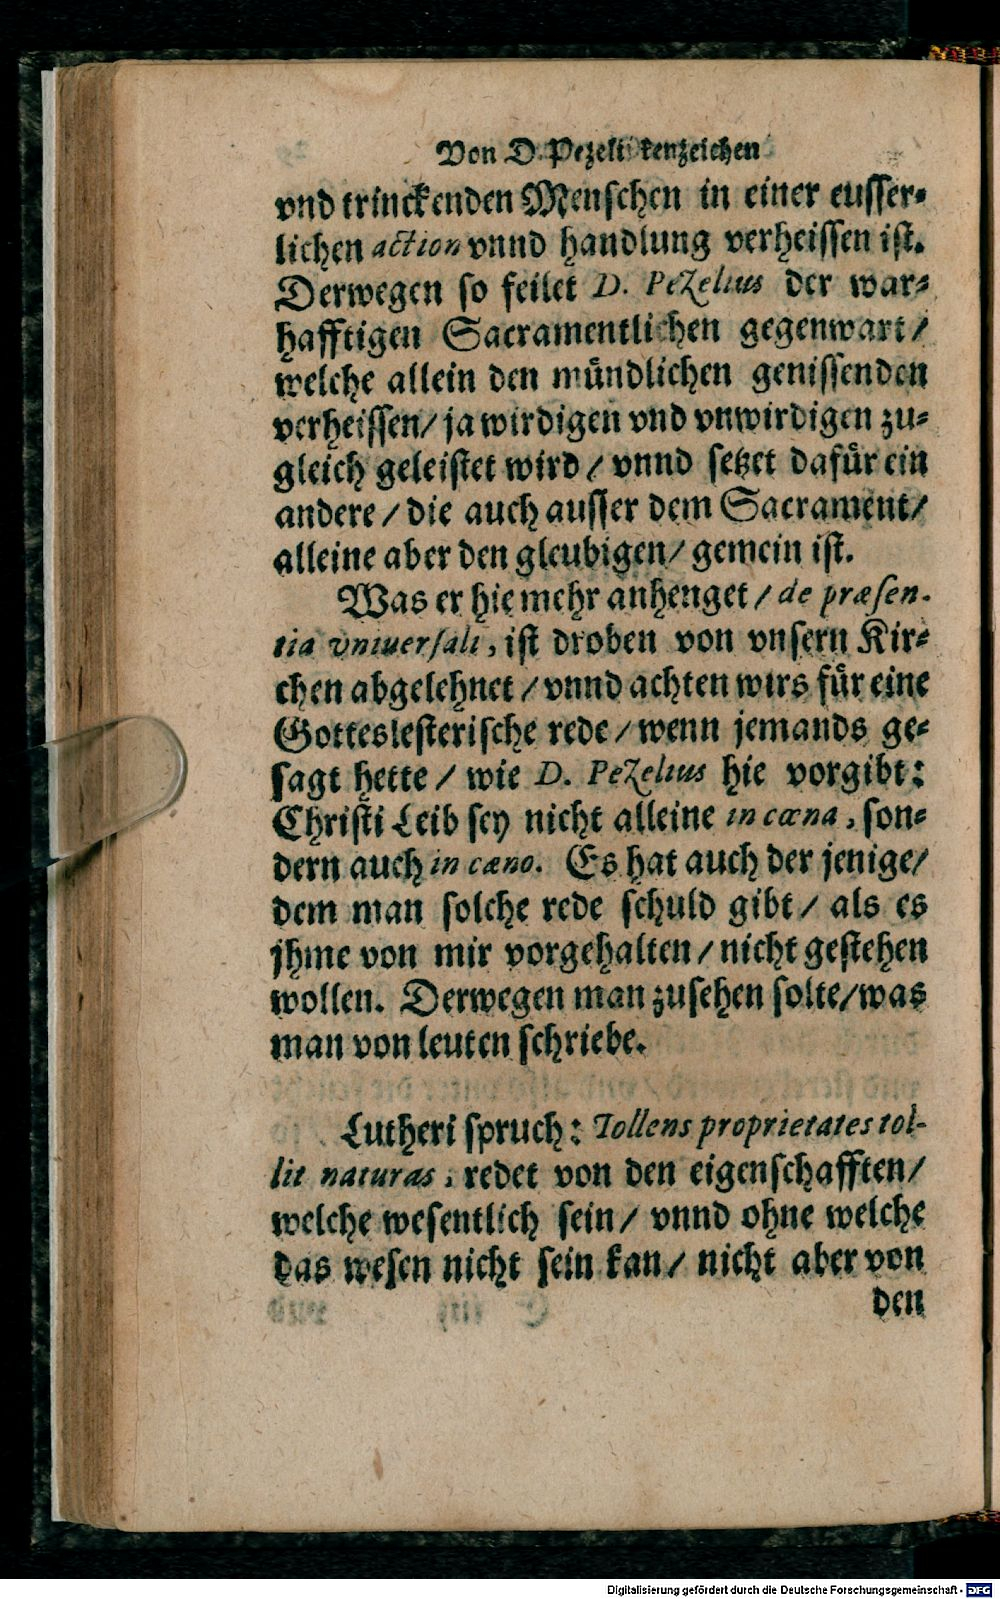 Von D. Pezeli kenzeichen
vnd trinckenden Menschen in einer eusser-
lichen action vnnd handlung verheissen ist.
Derwegen so feilet D. Pezelius der war-
hafftigen Sacramentlichen gegenwart/
welche allein den mündlichen genissenden
verheissen/ ja wirdigen vnd vnwirdigen zu-
gleich geleistet wird/ vnnd setzet dafür ein
andere/ die auch ausser dem Sacrament/
alleine aber den gleubigen/ gemein ist.
Was er hie mehr anhenget/ de præsen-
tia vniuersali, ist droben von vnsern Kir-
chen abgelehnet/ vnnd achten wirs für eine
Gotteslesterische rede/ wenn jemands ge-
sagt hette/ wie D. Pezelius hie vorgibt:
Christi Leib sey nicht alleine in cœna, son-
dern auch in cæno. Es hat auch der jenige/
dem man solche rede schuld gibt/ als es
jhme von mir vorgehalten/ nicht gestehen
wollen. Derwegen man zusehen solte/ was
man von leuten schriebe.
Lutheri spruch: Tollens proprietates tol-
lit naturas, redet von den eigenschafften/
welche wesentlich sein/ vnnd ohne welche
das wesen nicht sein kan/ nicht aber von
den
Digitalisierung gefördert durch die Deutsche Forschungsgemeinschaft - DFG